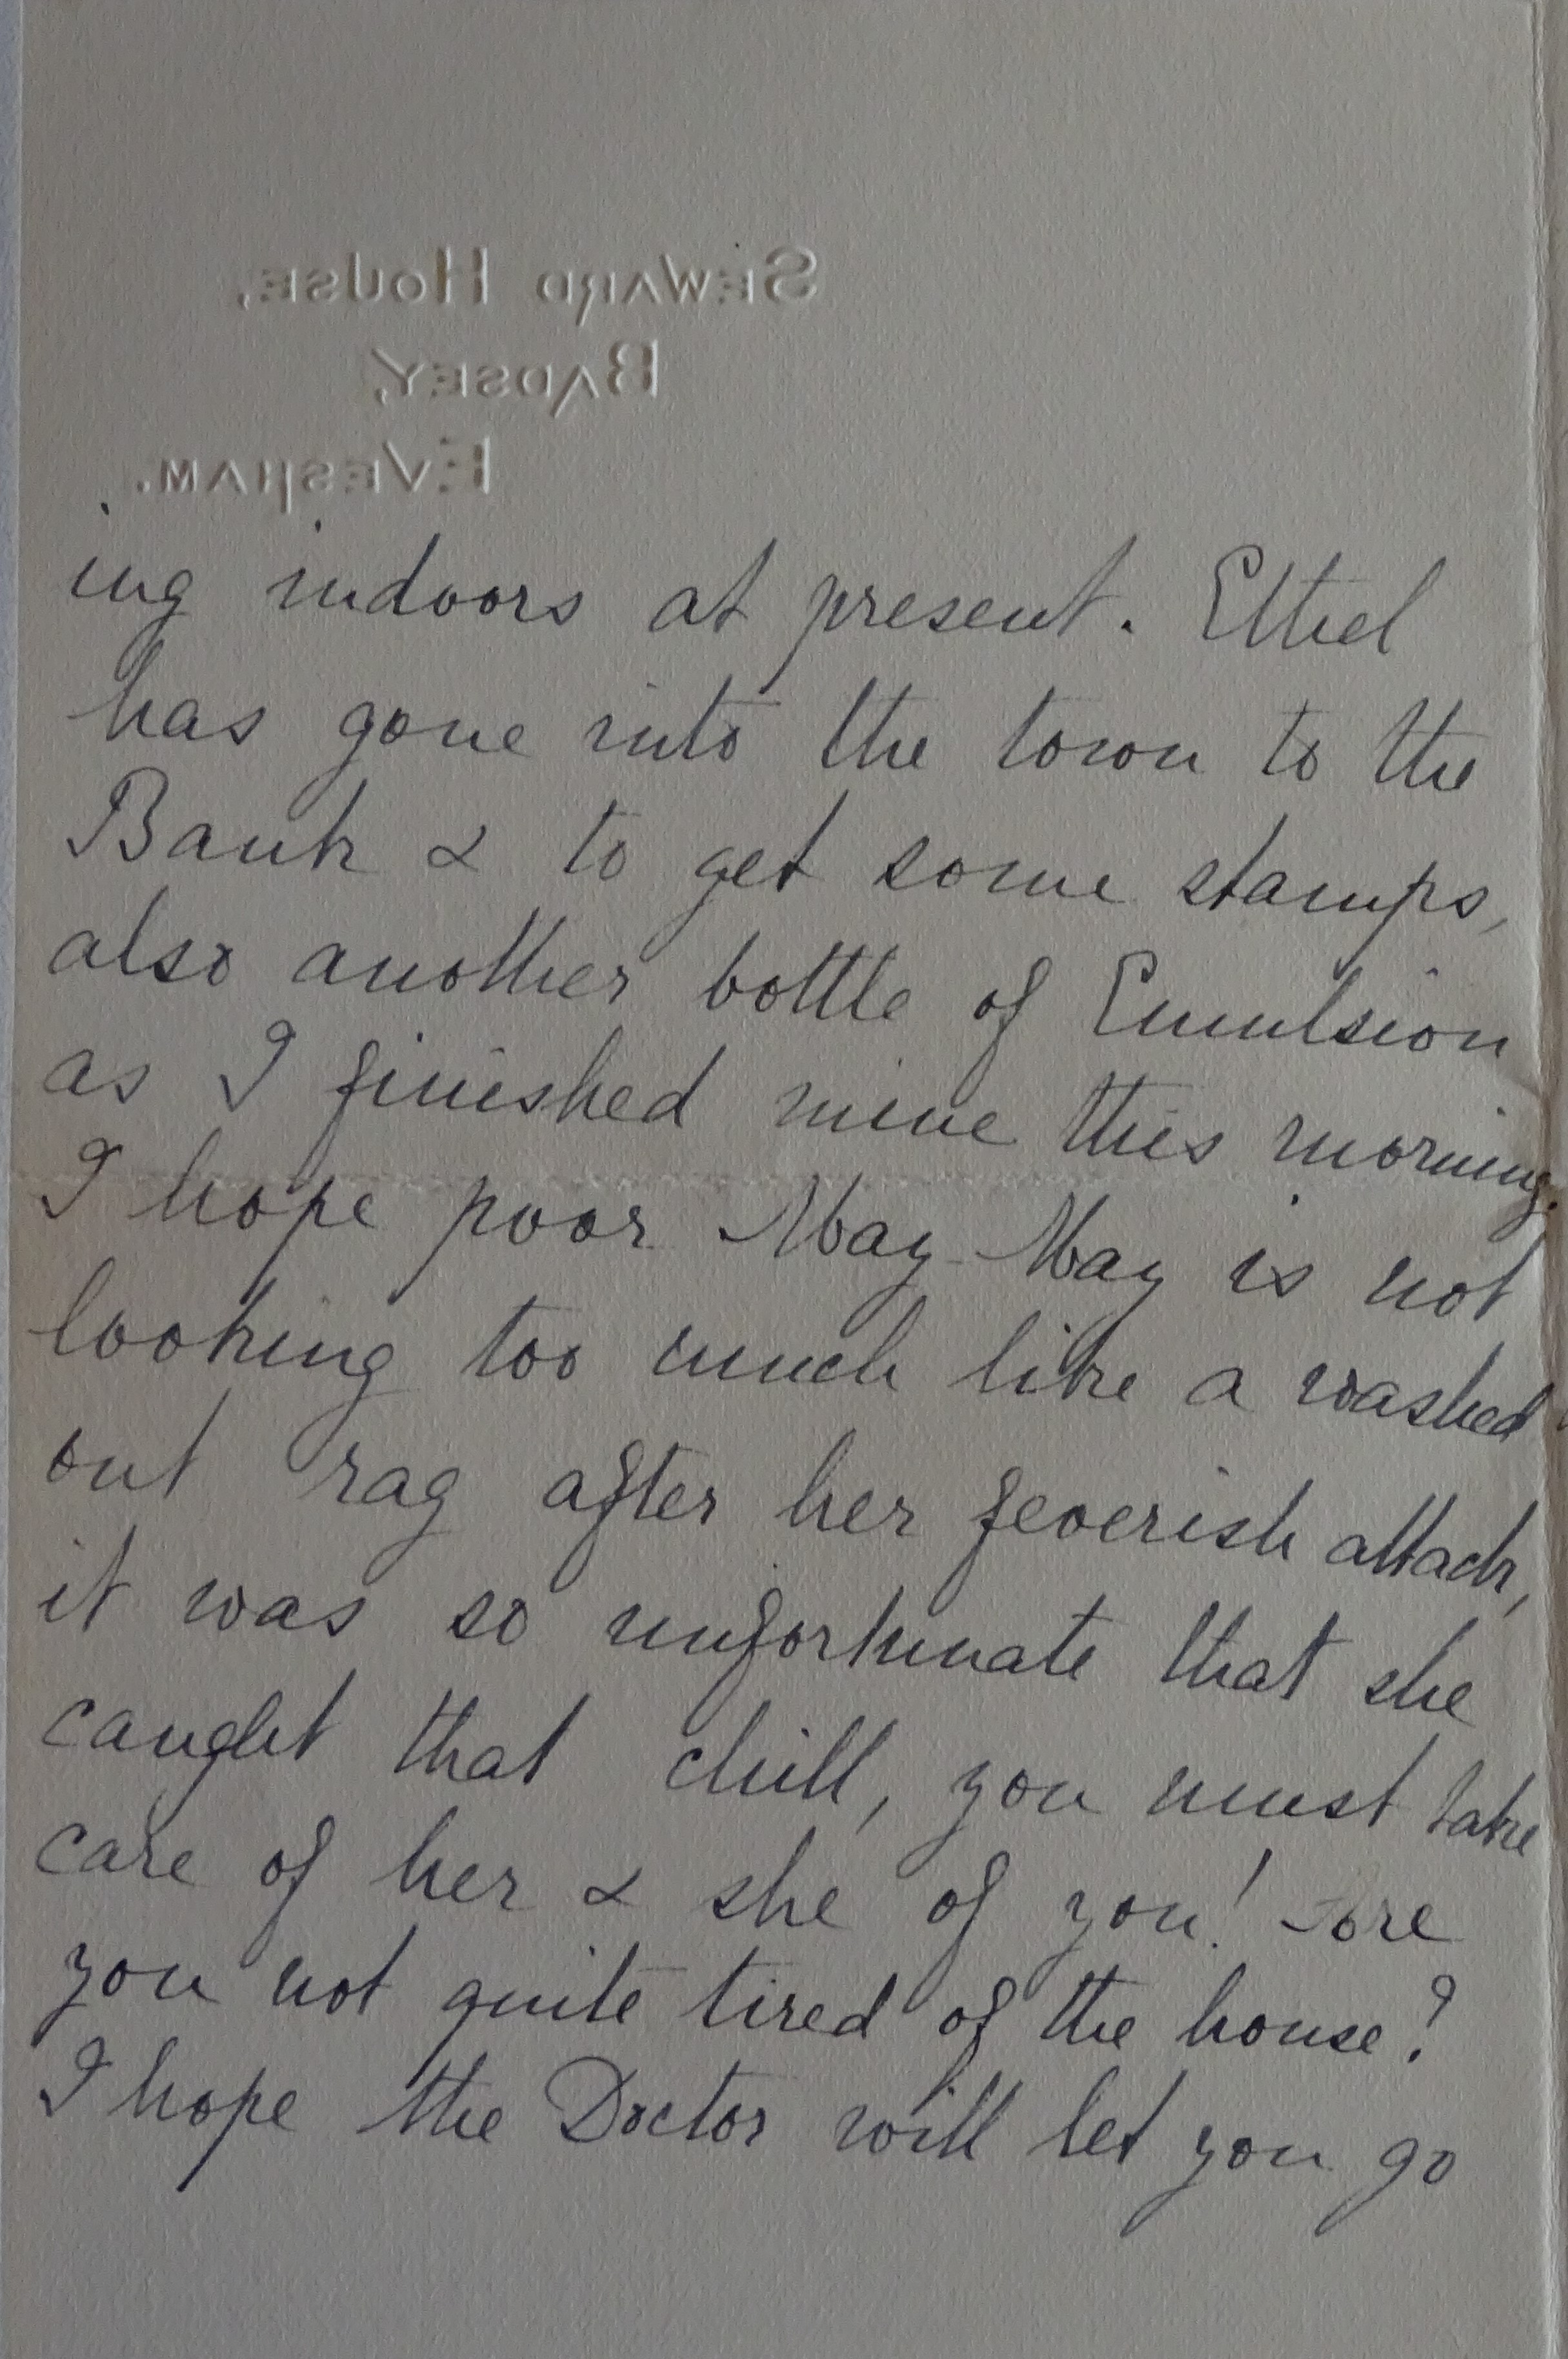 Seward House,
Badsey,
Evesham.
ing indoors at present. Ethel
has gone into the town to the
Bank & to get some stamps,
also another bottle of Emulsion
as I finished mine this morning.
I hope poor May-May is not
looking too much like a washed
out rag after her feverish attack,
it was so unfortunate that she
caught that chill, you must take
care of her & she of you! Are
you not quite tired of the house?
I hope the Doctor will let you go